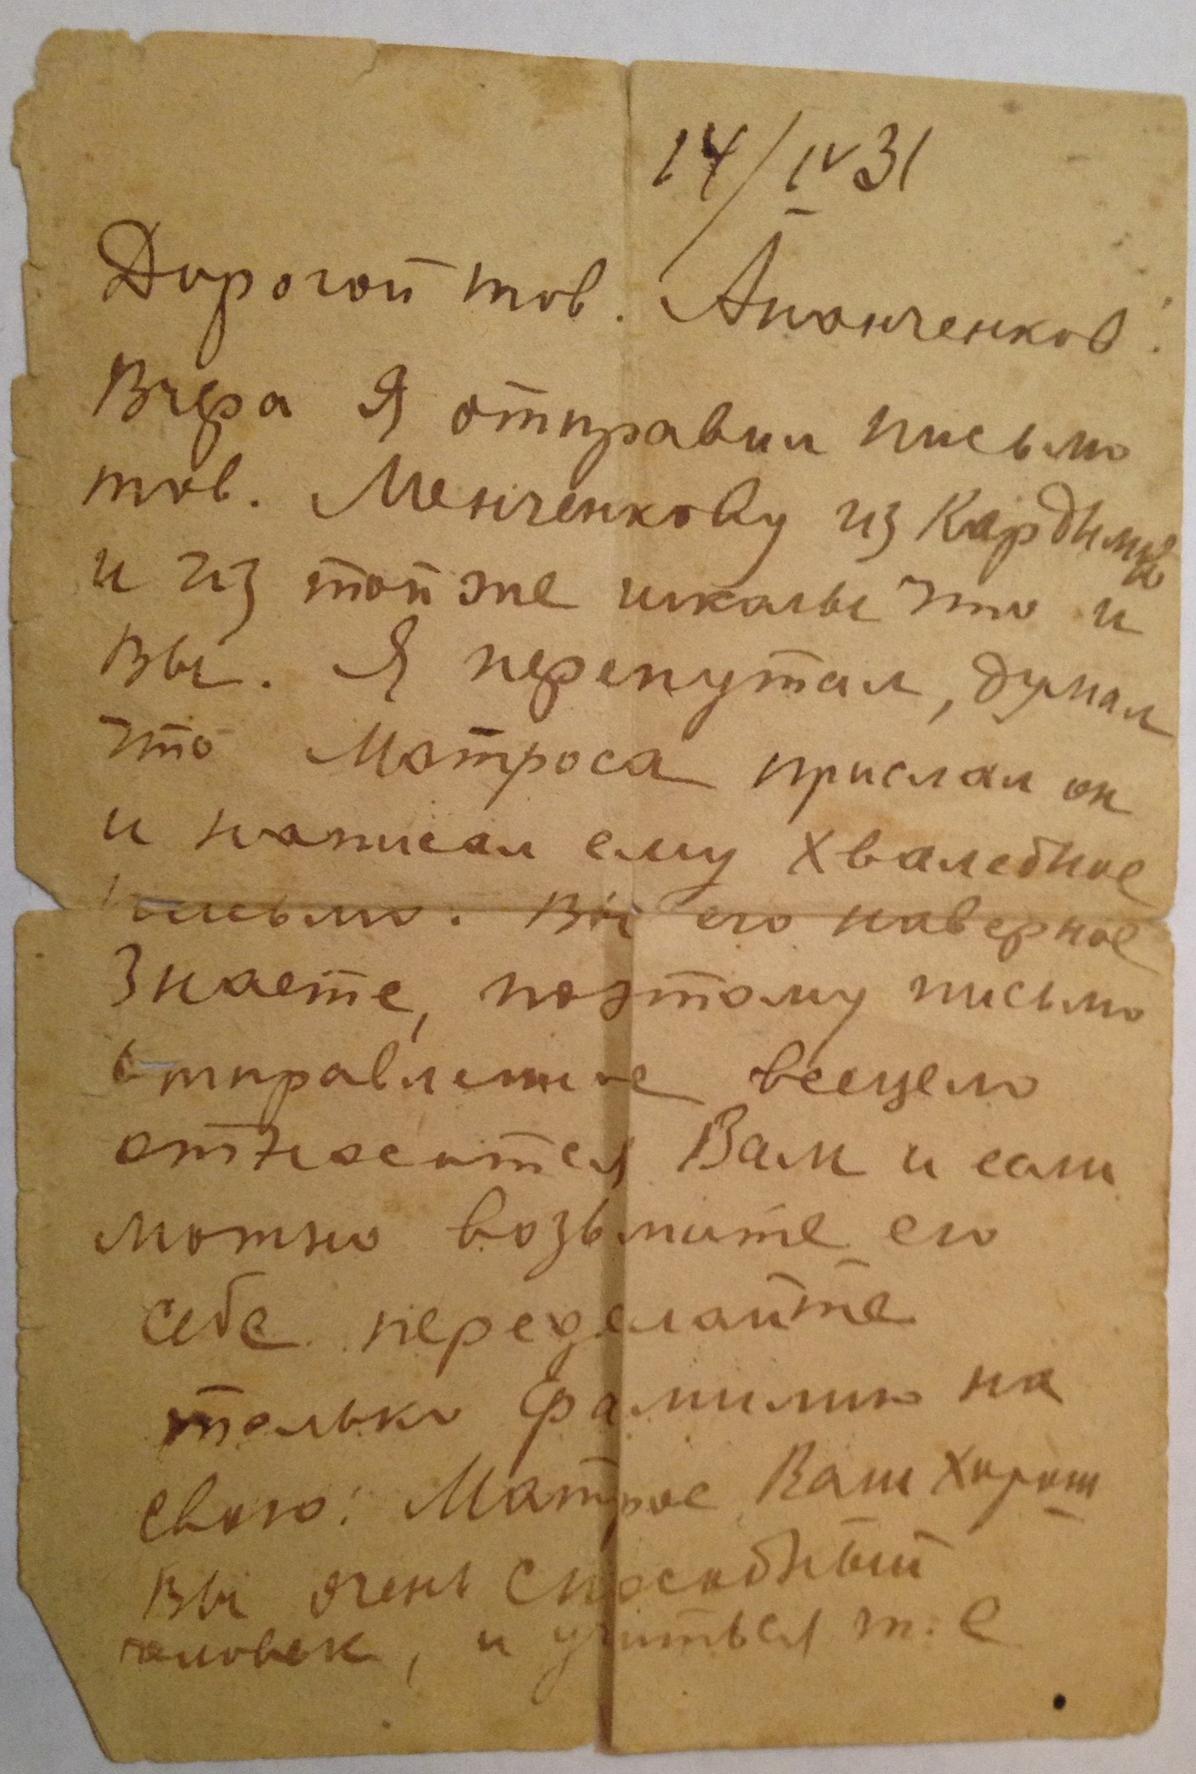 14/IV 31
Дорогой тов. Апонченков!
Вчера Я отправил письмо
тов. Менченкову из
и из той же школы что и
Вы. Я перепутал, думал
что Матроса прислал он
и написал ему хвалебное
письмо. Вы его наверное
Знаете, поэтому письмо
отправленное всецело
относится Вам и если
можно возьмите его
себе переделайте
только фамилию на
свою. Матрос Ваш хорош
Вы очень способный
человек, и учиться т. е